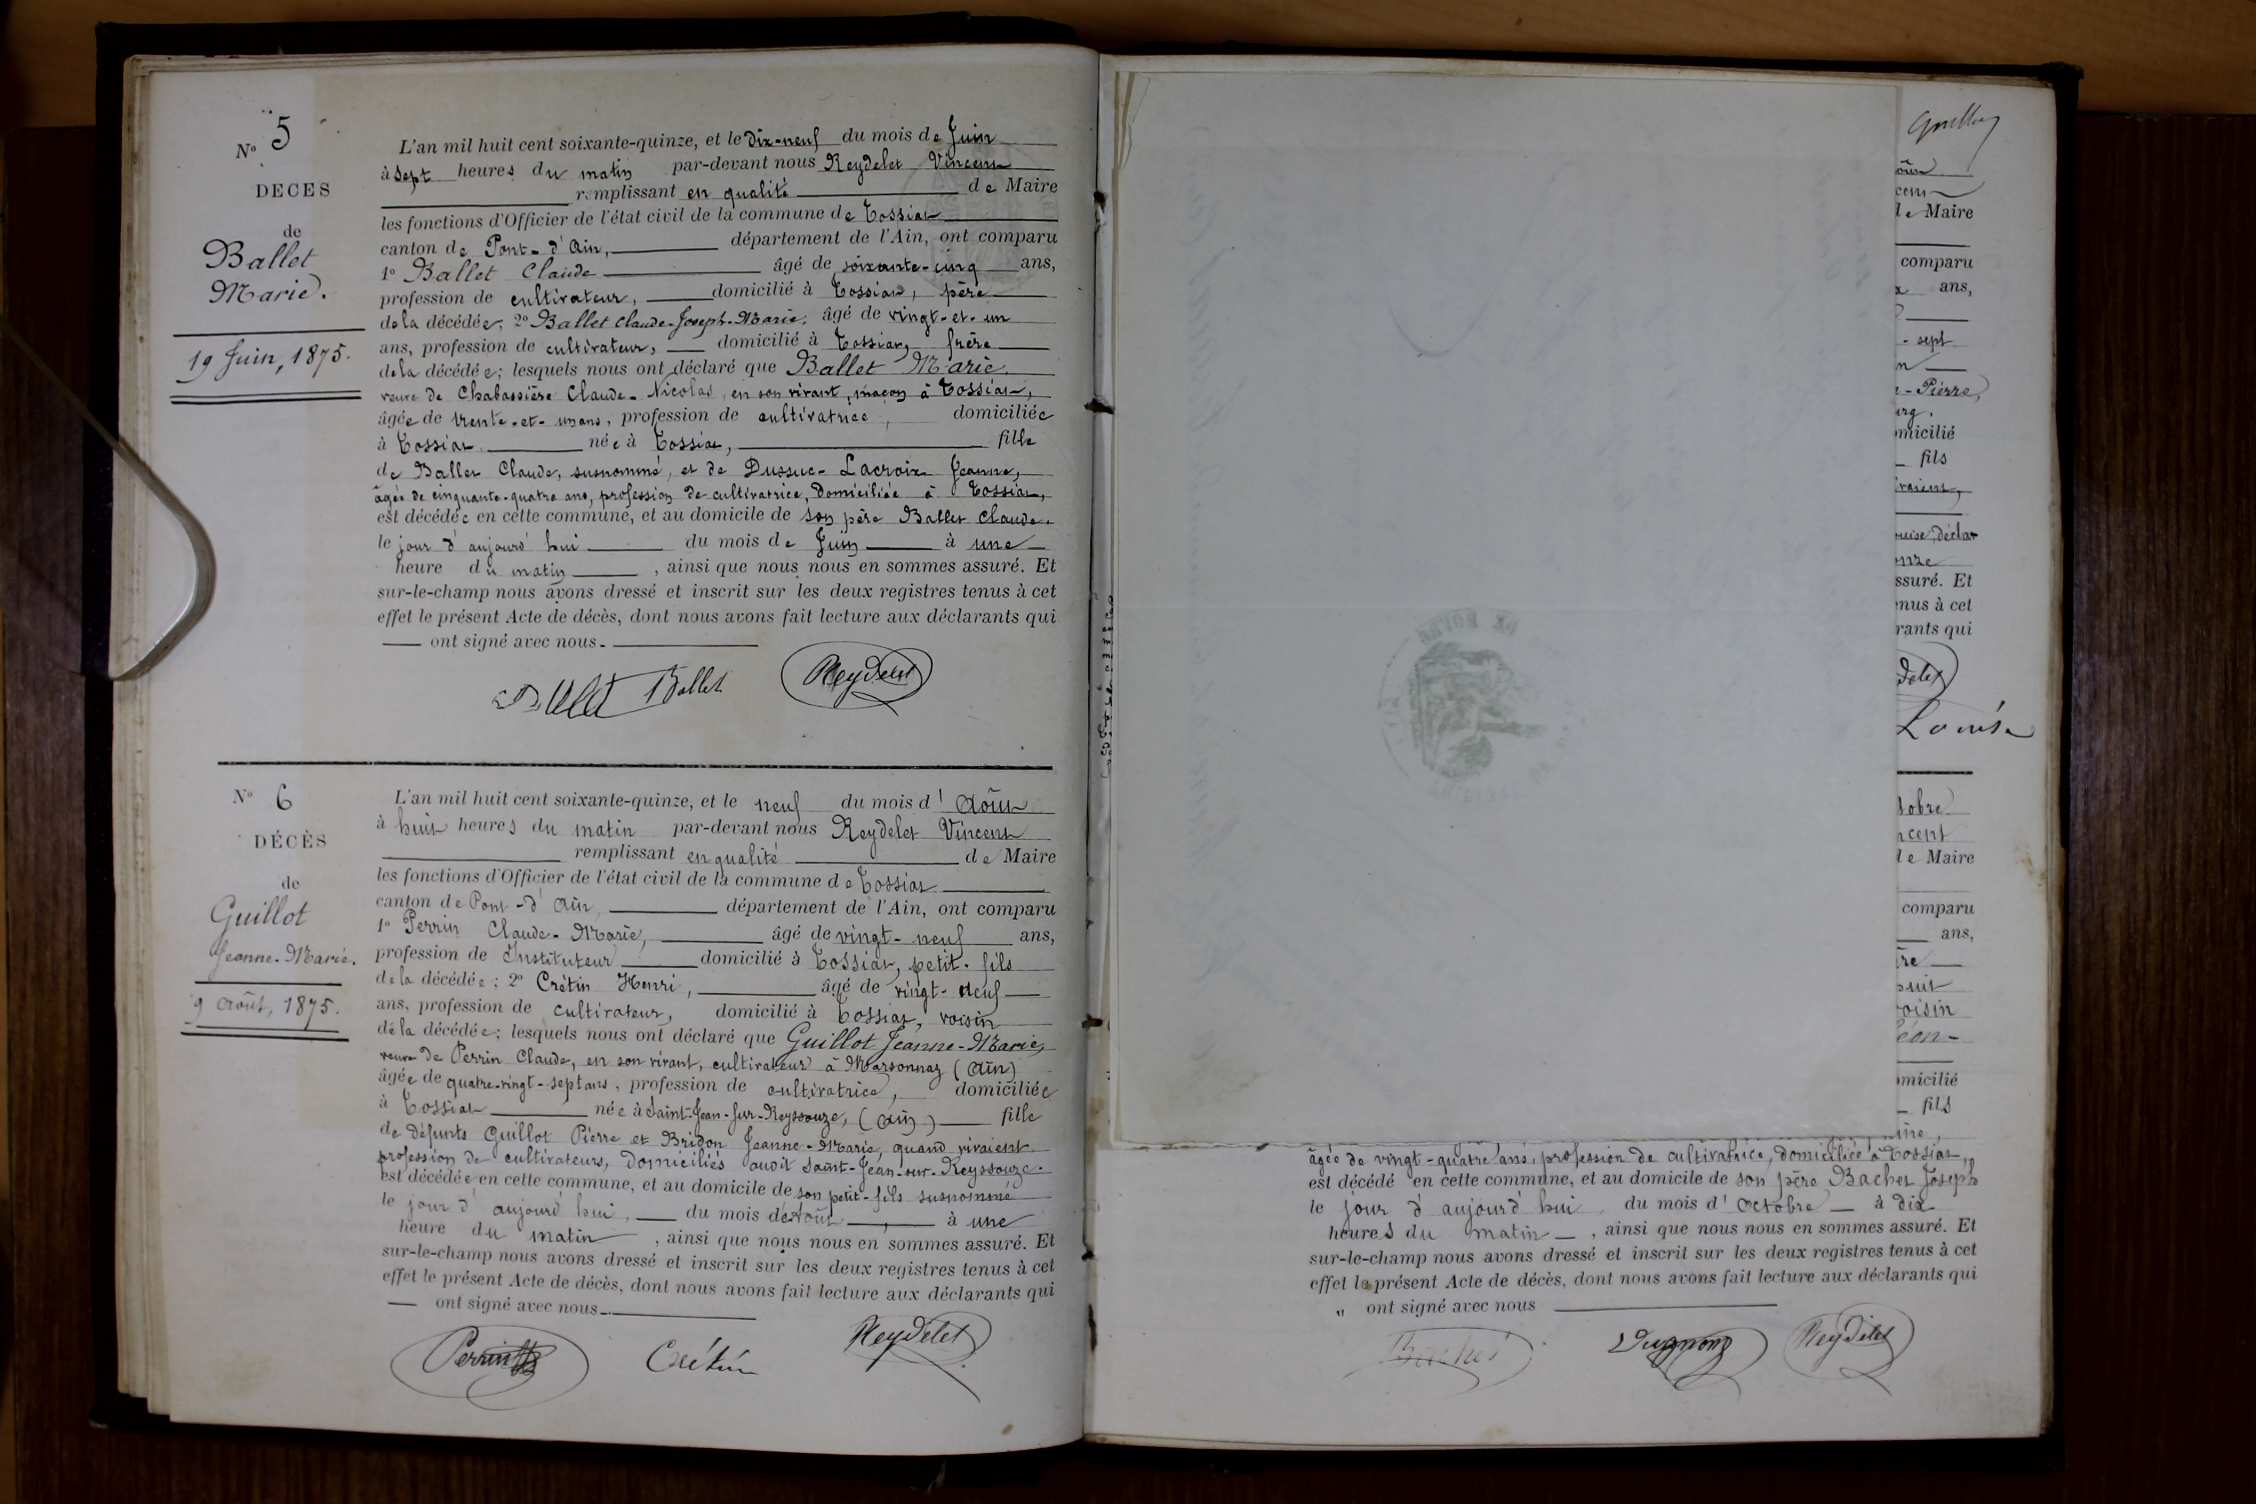 N° 5
DECES
de
Ballet
Marie.
19 Juin, 1875.
L'an mil huit cent soixante-quinze, et le dix-neuf du mois de Juin
à sept heures du matin par-devant nous Reydelet Vincent
remplissant en qualité de Maire
les fonctions d'Officier de l'état civil de la commune de Tossiat
canton de Pont-d'Ain, département de l'Ain, ont comparu
1° Ballet Claude âgé de soixante-cinq ans,
profession de cultivateur, domicilié à Tossiat, père
de la décédée; 2° Ballet Claude-Joseph-Marie, âgé de vingt-et-un
ans, profession de cultivateur, domicilié à Tossiat, frère
de la décédée; lesquels nous ont déclaré que Ballet Marie,
veuve de Chabassière Claude-Nicolas, en son vivant, maçon à Tossiat,
âgée de trente-et-un ans, profession de cultivatrice, domiciliée
à Tossiat née à Tossiat, fille
de Ballet Claude, susnommé, et de Dussuc-Lacroix Jeanne,
âgée de cinquante-quatre ans, profession de cultivatrice, domiciliée à Tossiat,
est décédée en cette commune, et au domicile de son père Ballet Claude,
le jour d'aujourd'hui du mois de Juin à une
heure du matin, ainsi que nous nous en sommes assuré. Et
sur-le-champ nous avons dressé et inscrit sur les deux registres tenus à cet
effet le présent Acte de décès, dont nous avons fait lecture aux déclarants qui
ont signé avec nous.
Ballet Reydelet
N° 6
DÉCÈS
de
Guillot
Jeanne-Marie.
9 Août, 1875.
L'an mil huit cent soixante-quinze, et le neuf du mois d'Août
à huit heures du matin par-devant nous Reydelet Vincent
remplissant en qualité de Maire
les fonctions d'Officier de l'état civil de la commune de Tossiat
canton de Pont-d'Ain, département de l'Ain, ont comparu
1° Perrin Claude-Marie, âgé de vingt-neuf ans,
profession de Instituteur domicilié à Tossiat, petit-fils
de la décédée; 2° Crétin Henri, âgé de vingt-neuf
ans, profession de cultivateur, domicilié à Tossiat, voisin
de la décédée; lesquels nous ont déclaré que Guillot Jeanne-Marie,
veuve de Perrin Claude, en son vivant, cultivateur à Marsonnaz (Ain)
âgée de quatre-vingt-sept ans, profession de cultivatrice, domiciliée
à Tossiat née à Saint-Jean-sur-Reyssouze, (Ain) fille
de défunts Guillot Pierre et Bridon Jeanne-Marie, quand vivaient
profession de cultivateurs, domiciliés audit Saint-Jean-sur-Reyssouze.
est décédée en cette commune, et au domicile de son petit-fils susnommé
le jour d'aujourd'hui, du mois d'Août, à une
heure du matin, ainsi que nous nous en sommes assuré. Et
sur-le-champ nous avons dressé et inscrit sur les deux registres tenus à cet
effet le présent Acte de décès, dont nous avons fait lecture aux déclarants qui
ont signé avec nous.
Perrin Crétin Reydelet
de Maire
comparu
ans,
- sept
-Pierre,
omicilié
fils
ssuré. Et
enus à cet
rants qui
Louise
tobre
ncent
de Maire
comparu
ans,
voisin
omicilié
fils
âgée de vingt-quatre ans, profession de cultivatrice, domiciliée à Tossiat,
est décédé en cette commune, et au domicile de son père Bachet Joseph
le jour d'aujourd'hui du mois d'Octobre à dix
heures du matin, ainsi que nous nous en sommes assuré. Et
sur-le-champ nous avons dressé et inscrit sur les deux registres tenus à cet
effet le présent Acte de décès, dont nous avons fait lecture aux déclarants qui
" ont signé avec nous
Reydelet